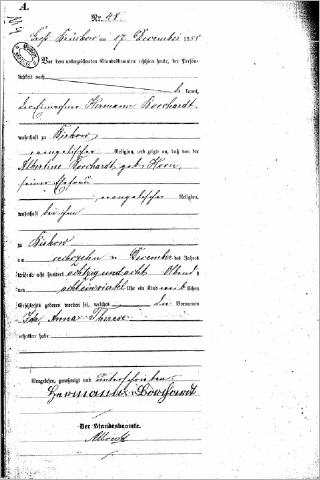 A.
Nr. 48.
am 17 Dezember 1888
Vor dem unterzeichneten Standesbeamten erschien heute, der Persön-
lichkeit nach
kannt,
Hermann Borchardt
wohnhaft zu
evangelischer Religion, und zeigte an, daß von der
Albertine Borchardt geb. Horn,
seiner Ehefrau
evangelischer Religion,
wohnhaft bei ihm
zu
am sechszehn ten Dezember des Jahres
tausend acht hundert achtzig und acht Abends
um acht einviertel Uhr ein Kind weiblichen
Geschlechts geboren worden sei, welches die Vornamen
Ida Anna Therese
erhalten habe
Vorgelesen, genehmigt und unterschrieben
Hermann Borchardt
Der Standesbeamte.